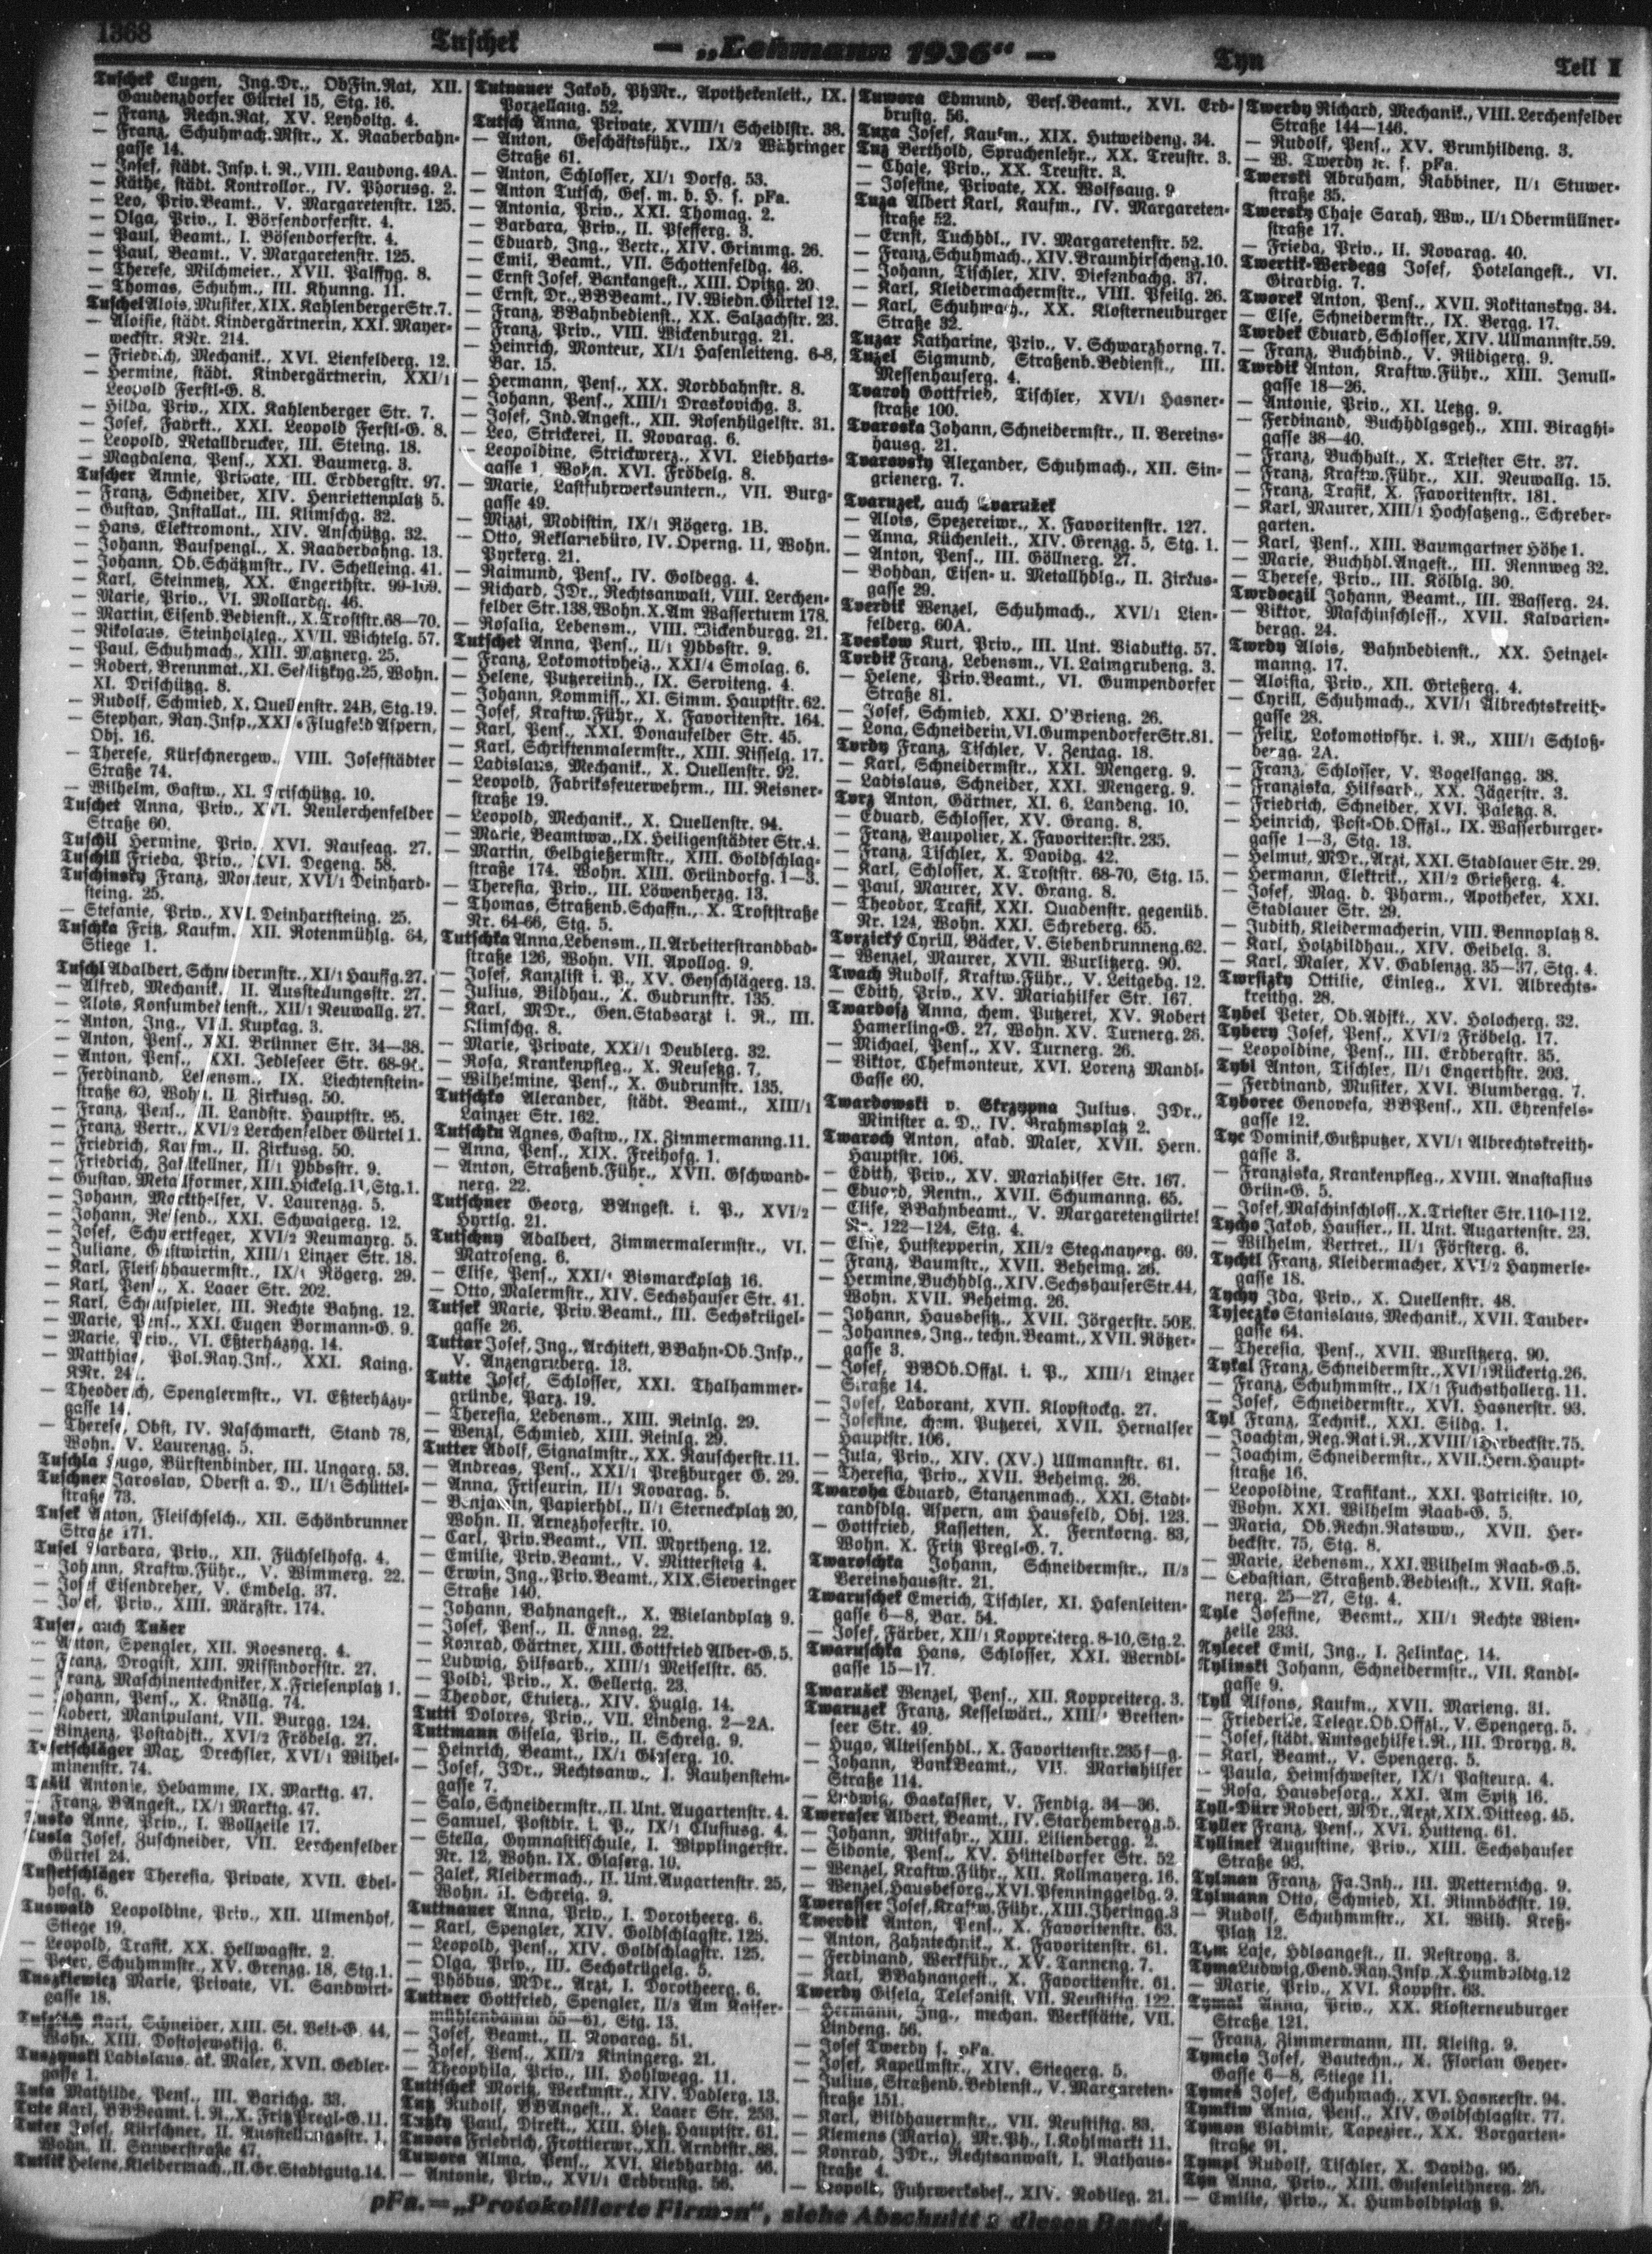 1368
Tuschek
— „Lehmann 1936“ —
Tyn
Teil I
Tuschek Eugen, Ing.Dr., ObFin.Rat, XII.
Gaudenzdorfer Gürtel 15, Stg. 16.
— Franz, Rechn.Rat, XV. Leydoltg. 4.
— Franz, Schuhmach.Mstr., X. Raaberbahn-
gasse 14.
— Josef, städt. Insp. i. R., VIII. Laudong. 49A.
— Käthe, städt. Kontrollor., IV. Phorusg. 2.
— Leo, Priv.Beamt., V. Margaretenstr. 125.
— Olga, Priv., I. Börsendorferstr. 4.
— Paul, Beamt., I. Bösendorferstr. 4.
— Paul, Beamt., V. Margaretenstr. 125.
— Therese, Milchmeier., XVII. Palffyg. 8.
— Thomas, Schuhm., III. Khunng. 11.
Tuschel Alois, Musiker, XIX. Kahlenberger Str. 7.
— Aloisie, städt. Kindergärtnerin, XXI. Mayer-
weckstr. KNr. 214.
— Friedrich, Mechanik., XVI. Lienfelderg. 12.
— Hermine, städt. Kindergärtnerin, XXI/1
Leopold Ferstl-G. 8.
— Hilda, Priv., XIX. Kahlenberger Str. 7.
— Josef, Fabrkt., XXI. Leopold Ferstl-G. 8.
— Leopold, Metalldrucker, III. Steing. 18.
— Magdalena, Pens., XXI. Baumerg. 3.
Tuscher Annie, Private, III. Erdbergstr. 97.
— Franz, Schneider, XIV. Henriettenplatz 5.
— Gustav, Installat., III. Klimschg. 32.
— Hans, Elektromont., XIV. Anschützg. 32.
— Johann, Bauspengl., X. Raaberbahng. 13.
— Johann, Ob.Schätzmstr., IV. Schelleing. 41.
— Karl, Steinmetz, XX. Engerthstr. 99-109.
— Marie, Priv., VI. Mollardg. 46.
— Martin, Eisenb.Bedienst., X. Troststr. 68—70.
— Nikolaus, Steinholzleg., XVII. Wichtelg. 57.
— Paul, Schuhmach., XIII. Matznerg. 25.
— Robert, Brennmat., XI. Sedlitzkyg. 25, Wohn.
XI. Drischützg. 8.
— Rudolf, Schmied, X. Quellenstr. 24B, Stg. 19.
— Stephan, Ray.Insp., Flugfeld Aspern,
Obj. 16.
— Therese, Kürschnergew., VIII. Josefstädter
Straße 74.
— Wilhelm, Gastw., XI. Drischützg. 10.
Tuschet Anna, Priv., XVI. Neulerchenfelder
Straße 60.
Tuschil Hermine, Priv. XVI. Nauseag. 27.
Tuschill Frieda, Priv., XVI. Degeng. 58.
Tuschinsky Franz, Monteur, XVI/1 Deinhard-
steing. 25.
— Stefanie, Priv., XVI. Deinhartsteing. 25.
Tuschka Fritz, Kaufm., XII. Rotenmühlg. 64,
Stiege 1.
Tuschl Adalbert, Schneidermstr., XI/1 Hauffg. 27.
— Alfred, Mechanik., II. Ausstellungsstr. 27.
— Alois, Konsumbedienst., XII/1 Neuwallg. 27.
— Anton, Ing., VIII. Kupkag. 3.
— Anton, Pens., XXI. Brünner Str. 34—38.
— Anton, Pens., XXI. Jedleseer Str.
— Ferdinand, Lebensm., IX. Liechtenstein-
straße 63, Wohn. II. Zirkusg. 50.
— Franz, Pens., III. Landstr. Hauptstr. 95.
— Franz, Vertr., XVI/2 Lerchenfelder Gürtel 1.
— Friedrich, Kaufm., II. Zirkusg. 50.
— Friedrich, Zahlkellner, II/1 Ybbsstr. 9.
— Gustav, Metallformer, XIII. Hickelg. 11, Stg. 1.
— Johann, Markthelfer, V. Laurenzg. 5.
— Johann, Reisend., XXI. Schwaigerg. 12.
— Josef, Schwertfeger, XVI/2 Neumayrg. 5.
— Juliane, Gastwirtin, XIII/1 Linzer Str. 18.
— Karl, Fleischhauermstr., IX/1 Rögerg. 29.
— Karl, Pens., X. Laaer Str. 202.
— Karl, Schauspieler, III. Rechte Bahng. 12.
— Marie, Pens., XXI. Eugen Bormann-G. 9.
— Marie, Priv., VI. Eßterházyg. 14.
— Matthias, Pol.Ray.Ins., XXI. Kaing.
KNr.
— Theoderich, Spenglermstr., VI. Eßterházy-
gasse 14.
— Therese, Obst, IV. Naschmarkt, Stand 78,
Wohn. V. Laurenzg. 5.
Tuschla Hugo, Bürstenbinder, III. Ungarg. 53.
Tuschner Jaroslav, Oberst a. D., II/1 Schüttel-
straße 73.
Tusek Anton, Fleischselch., XII. Schönbrunner
Straße 171.
Tusel Barbara, Priv., XII. Füchselhofg. 4.
— Johann, Kraftw.Führ., V. Wimmerg. 22.
— Josef Eisendreher, V. Embelg. 37.
— Josef, Priv., XIII. Märzstr. 174.
Tuser, auch Tušer
— Anton, Spengler, XII. Roesnerg. 4.
— Franz, Drogist, XIII. Missindorfstr. 27.
— Franz, Maschinentechniker, X. Friesenplatz 1.
— Johann, Pens., X. Knöllg. 74.
— Robert, Manipulant, VII. Burgg. 124.
— Vinzenz, Postadjkt., XVI/2 Fröbelg. 27.
Tusetschläger Max, Drechsler, XVI/1 Wilhel-
minenstr. 74.
Tušil Antonie, Hebamme, IX. Marktg. 47.
— Franz, BAngest., IX/1 Marktg. 47.
Tusko Anne, Priv., I. Wollzeile 17.
Tusla Josef, Zuschneider, VII. Lerchenfelder
Gürtel 24.
Tussetschläger Theresia, Private, XVII. Edel-
hofg. 6.
Tuswald Leopoldine, Priv., XII. Ulmenhof,
Stiege 19.
— Leopold, Trafik, XX. Hellwagstr. 2.
— Peter, Schuhmmstr., XV. Grenzg. 18, Stg. 1.
Tuszkiewicz Marie, Private, VI. Sandwirt-
gasse 18.
Karl, Schneider, XIII. St. Veit-G. 44,
Wohn. XIII. Dostojewskijg. 6.
Tuszynski Ladislaus, ak. Maler, XVII. Gebler-
gasse 1.
Tuta Mathilde, Pens., III. Barichg. 33.
Tute Karl, BBBeamt. i. R., X. Fritz Pregl-G. 11.
Tuter Josef, Kürschner, II. Ausstellungsstr. 1,
Wohn. II. Stuwerstraße 47.
Tutlik Helene, Kleidermach., II. Gr. Stadtgutg. 14.
Tutnauer Jakob, PhMr., Apothekenleit., IX.
Porzellang. 52.
Tutsch Anna, Private, XVIII/1 Scheidlstr. 38.
— Anton, Geschäftsführ., IX/2 Währinger
Straße 61.
— Anton, Schlosser, XI/1 Dorfg. 53.
— Anton Tutsch, Ges. m. b. H. s. pFa.
— Antonia, Priv., XXI. Thomag. 2.
— Barbara, Priv., II. Pfefferg. 3.
— Eduard, Ing., Vertr., XIV. Grimmg. 26.
— Emil, Beamt., VII. Schottenfeldg. 46.
— Ernst Josef, Bankangest., XIII. Opitzg. 20.
— Ernst, Dr., BBBeamt., IV. Wiedn. Gürtel 12.
— Franz, BBahnbedienst., XX. Salzachstr. 23.
— Franz, Priv., VIII. Wickenburgg. 21.
— Heinrich, Monteur, XI/1 Hasenleiteng. 6-8,
Bar. 15.
— Hermann, Pens., XX. Nordbahnstr. 8.
— Johann, Pens., XIII/1 Draskovichg. 3.
— Josef, Ind.Angest., XII. Rosenhügelstr. 31.
— Leo, Strickerei, II. Novarag. 6.
— Leopoldine, Strickwrerz., XVI. Liebharts-
gasse 1, Wohn. XVI. Fröbelg. 8.
— Marie, Lastfuhrwerksuntern., VII. Burg-
gasse 49.
— Mizzi, Modistin, IX/1 Rögerg. 1B.
— Otto, Reklamebüro, IV. Operng. 11, Wohn.
Pyrkerg. 21.
— Raimund, Pens., IV. Goldegg. 4.
— Richard, JDr., Rechtsanwalt, VIII. Lerchen-
felder Str. 138, Wohn. X. Am Wasserturm 178.
— Rosalia, Lebensm., VIII. Wickenburgg. 21.
Tutschek Anna, Pens., II/1 Ybbsstr. 9.
— Franz, Lokomotivheiz., XXI/4 Smolag. 6.
— Helene, Putzereiinh., IX. Serviteng. 4.
— Johann, Kommiss., XI. Simm. Hauptstr. 62.
— Josef, Kraftw.Führ., X. Favoritenstr. 164.
— Karl, Pens., XXI. Donaufelder Str. 45.
— Karl, Schriftenmalermstr., XIII. Nisselg. 17.
— Ladislaus, Mechanik., X. Quellenstr. 92.
— Leopold, Fabriksfeuerwehrm., III. Reisner-
straße 19.
— Leopold, Mechanik., X. Quellenstr. 94.
— Marie, Beamtww., IX. Heiligenstädter Str. 4.
— Martin, Gelbgießermstr., XIII. Goldschlag-
straße 174, Wohn. XIII. Gründorfg. 1—3.
— Theresia, Priv., III. Löwenherzg. 13.
— Thomas, Straßenb.Schaffn., X. Troststraße
Nr. 64-66, Stg. 5.
Tutschka Anna, Lebensm., II. Arbeiterstrandbad-
straße 126, Wohn. VII. Apollog. 9.
— Josef, Kanzlist i. P., XV. Geyschlägerg. 13.
— Julius, Bildhau., X. Gudrunstr. 135.
— Karl, MDr., Gen.Stabsarzt i. R., III.
Klimschg. 8.
— Marie, Private, XXI/1 Deublerg. 32.
— Rosa, Krankenpfleg., X. Neusetzg. 7.
— Wilhelmine, Pens., X. Gudrunstr. 135.
Tutschko Alexander, städt. Beamt., XIII/1
Lainzer Str. 162.
Tutschku Agnes, Gastw., IX. Zimmermanng. 11.
— Anna, Pens., XIX. Freihofg. 1.
— Anton, Straßenb.Führ., XVII. Gschwand-
nerg. 22.
Tutschner Georg, BAngest. i. P., XVI/2
Hyrtlg. 21.
Tutschny Adalbert, Zimmermalermstr., VI.
Matroseng. 6.
— Elise, Pens., XXI/1 Bismarckplatz 16.
— Otto, Malermstr., XIV. Sechshauser Str. 41.
Tutsek Marie, Priv.Beamt., III. Sechskrügel-
gasse 26.
Tuttar Josef, Ing., Architekt, BBahn-Ob.Insp.,
V. Anzengruberg. 13.
Tutte Josef, Schlosser, XXI. Thalhammer-
gründe, Parz. 19.
— Theresia, Lebensm., XIII. Reinlg. 29.
— Wenzl, Schmied, XIII. Reinlg. 29.
Tutter Adolf, Signalmstr., XX. Rauscherstr. 11.
— Andreas, Pens., XXI/1 Preßburger G. 29.
— Anna, Friseurin, II/1 Novarag. 5.
— Benjamin, Papierhdl., II/1 Sterneckplatz 20,
Wohn. II. Arnezhoferstr. 10.
— Carl, Priv.Beamt., VII. Myrtheng. 12.
— Emilie, Priv.Beamt., V. Mittersteig 4.
— Erwin, Ing., Priv.Beamt., XIX. Sieveringer
Straße 140.
— Johann, Bahnangest., X. Wielandplatz 9.
— Josef, Pens., II. Ennsg. 22.
— Konrad, Gärtner, XIII. Gottfried Alber-G. 5.
— Ludwig, Hilfsarb., XIII/1 Meiselstr. 65.
— Poldi, Priv., X. Gellertg. 23.
— Theodor, Etuierz., XIV. Huglg. 14.
Tutti Dolores, Priv., VII. Lindeng. 2—2A.
Tuttmann Gisela, Priv., II. Schreig. 9.
— Heinrich, Beamt., IX/1 Glaserg. 10.
— Josef, JDr., Rechtsanw., I. Rauhenstein-
gasse 7.
— Salo, Schneidermstr., II. Unt. Augartenstr. 4.
— Samuel, Postdir. i. P., IX/1 Clusiusg. 4.
— Stella, Gymnastikschule, I. Wipplingerstr.
Nr. 12, Wohn. IX. Glaserg. 10.
— Zalek, Kleidermach., II. Unt. Augartenstr. 25,
Wohn. II. Schreig. 9.
Tuttnauer Anna, Priv., I. Dorotheerg. 6.
— Karl, Spengler, XIV. Goldschlagstr. 125.
— Leopold, Pens., XIV. Goldschlagstr. 125.
— Olga, Priv., III. Sechskrügelg. 5.
— Phöbus, MDr., Arzt, I. Dorotheerg. 6.
Tuttner Gottfried, Spengler, II/3 Am Kaiser-
mühlendamm 55—61, Stg. 13.
— Josef, Beamt., II. Novarag. 51.
— Josef, Pens., XII/2 Kiningerg. 21.
— Theophila, Priv., III. Hohlwegg. 11.
Tuttschek Moritz, Werkmstr., XIV. Dadlerg. 13.
Tutz Rudolf, BBAngest., X. Laaer Str. 253.
Tutzky Paul, Direkt., XIII. Hietz. Hauptstr. 61.
Tuvora Friedrich, Frottierwr., XII. Arndtstr. 88.
Tuwora Alma, Pens., XVI. Liebhardtg. 46.
— Antonie, Priv., XVI/1 Erdbrustg. 56.
Tuwora Edmund, Vers.Beamt., XVI. Erd-
brustg. 56.
Tuxa Josef, Kaufm., XIX. Hutweideng. 34.
Tuz Berthold, Sprachenlehr., XX. Treustr. 3.
— Chaje, Priv., XX. Treustr. 3.
— Josefine, Private, XX. Wolfsaug. 9.
Tuza Albert Karl, Kaufm., IV. Margareten-
straße 52.
— Ernst, Tuchhdl., IV. Margaretenstr. 52.
— Franz, Schuhmach., XIV. Braunhirscheng. 10.
— Johann, Tischler, XIV. Diefenbachg. 37.
— Karl, Kleidermachermstr., VIII. Pfeilg. 26.
— Karl, Schuhmach., XX. Klosterneuburger
Straße 32.
Tuzar Katharine, Priv., V. Schwarzhorng. 7.
Tuzel Sigmund, Straßenb.Bedienst., III.
Messenhauserg. 4.
Tvaroh Gottfried, Tischler, XVI/1 Hasner-
straße 100.
Tvaroska Johann, Schneidermstr., II. Vereins-
hausg. 21.
Tvarovsky Alexander, Schuhmach., XII. Sin-
grienerg. 7.
Tvaruzek, auch Tvaružek
— Alois, Spezereiwr., X. Favoritenstr. 127.
— Anna, Küchenleit., XIV. Grenzg. 5, Stg. 1.
— Anton, Pens., III. Göllnerg. 27.
— Bohdan, Eisen- u. Metallhdlg., II. Zirkus-
gasse 29.
Tverdik Wenzel, Schuhmach., XVI/1 Lien-
felderg. 60A.
Tveskow Kurt, Priv., III. Unt. Viaduktg. 57.
Tvrdik Franz, Lebensm., VI. Laimgrubeng. 3.
— Helene, Priv.Beamt., VI. Gumpendorfer
Straße 81.
— Josef, Schmied, XXI. O'Brieng. 26.
— Lona, Schneiderin, VI. Gumpendorfer Str. 81.
Tvrdy Franz, Tischler, V. Zentag. 18.
— Karl, Schneidermstr., XXI. Mengerg. 9.
— Ladislaus, Schneider, XXI. Mengerg. 9.
Tvrz Anton, Gärtner, XI. 6. Landeng. 10.
— Eduard, Schlosser, XV. Grang. 8.
— Franz, Baupolier, X. Favoritenstr. 235.
— Franz, Tischler, X. Davidg. 42.
— Karl, Schlosser, X. Troststr. 68-70, Stg. 15.
— Paul, Maurer, XV. Grang. 8.
— Theodor, Trafik, XXI. Quadenstr. gegenüb.
Nr. 124, Wohn. XXI. Schreberg. 65.
Tvrzický Cyrill, Bäcker, V. Siebenbrunneng. 62.
— Wenzel, Maurer, XVII. Wurlitzerg. 90.
Twach Rudolf, Kraftw.Führ., V. Leitgebg. 12.
— Edith, Priv., XV. Mariahilfer Str. 167.
Twardosz Anna, chem. Putzerei, XV. Robert
Hamerling-G. 27, Wohn. XV. Turnerg. 26.
— Michael, Pens., XV. Turnerg. 26.
— Viktor, Chefmonteur, XVI. Lorenz Mandl-
Gasse 60.
Twardowski v. Skrzypna Julius, JDr.,
Minister a. D., IV. Brahmsplatz 2.
Twaroch Anton, akad. Maler, XVII. Hern.
Hauptstr. 106.
— Edith, Priv., XV. Mariahilfer Str. 167.
— Eduard, Rentn., XVII. Schumanng. 65.
— Elise, BBahnbeamt., V. Margaretengürtel
Nr. 122—124, Stg. 4.
— Elise, Hutstepperin, XII/2 Stegmayerg. 69.
— Franz, Baumstr., XVII. Beheimg. 26.
— Hermine, Buchhdlg., XIV. Sechshauser Str. 44,
Wohn. XVII. Beheimg. 26.
— Johann, Hausbesitz., XVII. Jörgerstr. 50E.
— Johannes, Ing., techn.Beamt., XVII. Rötzer-
gasse 3.
— Josef, BBOb.Offzl. i. P., XIII/1 Linzer
Straße 14.
— Josef, Laborant, XVII. Klopstockg. 27.
— Josefine, chem. Putzerei, XVII. Hernalser
Hauptstr. 106.
— Jula, Priv., XIV. (XV.) Ullmannstr. 61.
— Theresia, Priv., XVII. Beheimg. 26.
Twaroha Eduard, Stanzenmach., XXI. Stadt-
randsdlg. Aspern, am Hausfeld, Obj. 123.
— Gottfried, Kassetten, X. Fernkorng. 83,
Wohn. X. Fritz Pregl-G. 7.
Twaroschka Johann, Schneidermstr., II/3
Vereinshausstr. 21.
Twaruschek Emerich, Tischler, XI. Hasenleiten-
gasse 6—8, Bar. 54.
— Josef, Färber, XII/1 Koppreiterg. 8-10, Stg. 2.
Twaruschka Hans, Schlosser, XXI. Werndl-
gasse 15—17.
Twarušek Wenzel, Pens., XII. Koppreiterg. 3.
Twaruzek Franz, Kesselwärt., XIII/1 Breiten-
seer Str. 49.
— Hugo, Alteisenhdl., X. Favoritenstr. 235 f—g.
— Johann, BankBeamt., VII. Mariahilfer
Straße 114.
— Ludwig, Gaskassier, V. Fendig. 34—36.
Tweraser Albert, Beamt., IV. Starhembergg. 5.
— Johann, Mitfahr., XIII. Lilienbergg. 2.
— Sidonie, Pens., XV. Hütteldorfer Str. 52.
— Wenzel, Kraftw.Führ., XII. Kollmayerg. 16.
— Wenzel, Hausbesorg., XVI. Pfenninggeldg. 9.
Twerasser Josef, Kraftw.Führ., XIII. Jheringg. 3
Twerdik Anton, Pens., X. Favoritenstr. 63.
— Anton, Zahntechnik., X. Favoritenstr. 61.
— Ferdinand, Werkführ., XV. Tanneng. 7.
— Karl, BBahnangest., X. Favoritenstr. 61.
Twerdy Gisela, Telefonist, VII. Neustiftg. 122.
— Hermann, Ing., mechan. Werkstätte, VII.
Lindeng. 56.
— Josef Twerdy s. pFa.
— Josef, Kapellmstr., XIV. Stiegerg. 5.
— Julius, Straßenb.Bedienst., V. Margareten-
straße 151.
— Karl, Bildhauermstr., VII. Neustiftg. 83.
— Klemens (Maria), Mr.Ph., I. Kohlmarkt 11.
— Konrad, JDr., Rechtsanwalt, I. Rathaus-
straße 4.
— Leopold, Fuhrwerksbes., XIV. Nobileg. 21.
Twerdy Richard, Mechanik., VIII. Lerchenfelder
Straße 144—146.
— Rudolf, Pens., XV. Brunhildeng. 3.
— W. Twerdy s. pFa.
Twerski Abraham, Rabbiner, II/1 Stuwer-
straße 35.
Twersky Chaje Sarah, Ww., II/1 Obermüllner-
straße 17.
— Frieda, Priv., II. Novarag. 40.
Twertik-Werdegg Josef, Hotelangest., VI.
Girardig. 7.
Tworek Anton, Pens., XVII. Rokitanskyg. 34.
— Else, Schneidermstr., IX. Bergg. 17.
Twrdek Eduard, Schlosser, XIV. Ullmannstr. 59.
— Franz, Buchbind., V. Rüdigerg. 9.
Twrdik Anton, Kraftw.Führ., XIII. Jenull-
gasse 18—26.
— Antonie, Priv., XI. Uetzg. 9.
— Ferdinand, Buchhdlgsgeh., XIII. Biraghi-
gasse 38—40.
— Franz, Buchhalt., X. Triester Str. 37.
— Franz, Kraftw.Führ., XII. Neuwallg. 15.
— Franz, Trafik, X. Favoritenstr. 181.
— Karl, Maurer, XIII/1 Hochsatzeng., Schreber-
garten.
— Karl, Pens., XIII. Baumgartner Höhe 1.
— Marie, Buchhdl.Angest., III. Rennweg 32.
— Therese, Priv., III. Kölblg. 30.
Twrdoczil Johann, Beamt., III. Wasserg. 24.
— Viktor, Maschinschloss., XVII. Kalvarien-
bergg. 24.
Twrdy Alois, Bahnbedienst., XX. Heinzel-
manng. 17.
— Aloisia, Priv., XII. Grießerg. 4.
— Cyrill, Schuhmach., XVI/1 Albrechtskreith-
gasse 28.
— Felix, Lokomotivfhr. i. R., XIII/1 Schloß-
bergg. 2A.
— Franz, Schlosser, V. Vogelsangg. 38.
— Franziska, Hilfsarb., XX. Jägerstr. 3.
— Friedrich, Schneider, XVI. Paletzg. 8.
— Heinrich, Post-Ob.Offzl., IX. Wasserburger-
gasse 1—3, Stg. 13.
— Helmut, MDr., Arzt, XXI. Stadlauer Str. 29.
— Hermann, Elektrik., XII/2 Grießerg. 4.
— Josef, Mag. d. Pharm., Apotheker, XXI.
Stadlauer Str. 29.
— Judith, Kleidermacherin, VIII. Bennoplatz 8.
— Karl, Holzbildhau., XIV. Geibelg. 3.
— Karl, Maler, XV. Gablenzg. 35—37, Stg. 4.
Twrsizky Ottilie, Einleg., XVI. Albrechts-
kreithg. 28.
Tybel Peter, Ob.Adjkt., XV. Holocherg. 32.
Tybery Josef, Pens., XVI/2 Fröbelg. 17.
— Leopoldine, Pens., III. Erdbergstr. 35.
Tybi Anton, Tischler, II/1 Engerthstr. 203.
— Ferdinand, Musiker, XVI. Blumbergg. 7.
Tyborec Genovefa, BBPens., XII. Ehrenfels-
gasse 12.
Tyc Dominik, Gußputzer, XVI/1 Albrechtskreith-
gasse 3.
— Franziska, Krankenpfleg., XVIII. Anastasius
Grün-G. 5.
— Josef, Maschinschloss., X. Triester Str. 110-112.
Tycho Jakob, Hausier., II. Unt. Augartenstr. 23.
— Wilhelm, Vertret., II/1 Försterg. 6.
Tychtl Franz, Kleidermacher, XVI/2 Haymerle-
gasse 18.
Tychy Ida, Priv., X. Quellenstr. 48.
Tyjeczko Stanislaus, Mechanik., XVII. Tauber-
gasse 64.
— Theresia, Pens., XVII. Wurlitzerg. 90.
Tykal Franz, Schneidermstr., XVI/1 Rückertg. 26.
— Franz, Schuhmmstr., IX/1 Fuchsthallerg. 11.
— Josef, Schneidermstr., XVI. Hasnerstr. 93.
Tyl Franz, Technik., XXI. Sildg. 1.
— Joachim, Reg.Rat i. R., XVIII/1 Herbeckstr. 75.
— Joachim, Schneidermstr., XVII. Hern. Haupt-
straße 16.
— Leopoldine, Trafikant., XXI. Patrizistr. 10,
Wohn. XXI. Wilhelm Raab-G. 5.
— Maria, Ob.Rechn.Ratsww., XVII. Her-
beckstr. 75, Stg. 8.
— Marie, Lebensm., XXI. Wilhelm Raab-G. 5.
— Sebastian, Straßenb.Bedienst., XVII. Kast-
nerg. 25—27, Stg. 4.
Tyle Josefine, Beamt., XII/1 Rechte Wien-
zeile 233.
Tylecek Emil, Ing., I. Zelinkag. 14.
Tylinski Johann, Schneidermstr., VII. Kandl-
gasse 9.
Tyll Alfons, Kaufm., XVII. Marieng. 31.
— Friederike, Telegr.Ob.Offzl., V. Spengerg. 5.
— Josef, städt. Amtsgehilfe i. R., III. Droryg. 8.
— Karl, Beamt., V. Spengerg. 5.
— Paula, Heimschwester, IX/1 Pasteurg. 4.
— Rosa, Hausbesorg., XXI. Am Spitz 16.
Tyll-Dürr Robert, MDr., Arzt, XIX. Dittesg. 45.
Tyller Franz, Pens., XVI. Hutteng. 61.
Tyllinek Augustine, Priv., XIII. Sechshauser
Straße 93.
Tylman Franz, Fa.Inh., III. Metternichg. 9.
Tylmann Otto, Schmied, XI. Rinnböckstr. 19.
— Rudolf, Schuhmmstr., XI. Wilh. Kreß-
Platz 12.
Tym Laje, Hdlsangest., II. Nestroyg. 3.
Tyma Ludwig, Gend.Ray.Insp., X. Humboldtg. 12
— Marie, Priv., XVI. Koppstr. 63.
Tymal Anna, Priv., XX. Klosterneuburger
Straße 121.
— Franz, Zimmermann, III. Kleistg. 9.
Tymcio Josef, Bautechn., X. Florian Geyer-
Gasse 6—8, Stiege 11.
Tymes Josef, Schuhmach., XVI. Hasnerstr. 94.
Tymkiw Anna, Pens., XIV. Goldschlagstr. 77.
Tymon Vladimir, Tapezier., XX. Vorgarten-
straße 91.
Tympl Rudolf, Tischler, X. Davidg. 95.
Tyn Anna, Priv., XIII. Gusenleithnerg. 25.
— Emilie, Priv., X. Humboldtplatz 9.
pFa. = „Protokollierte Firmen“, siehe Abschnitt 2 dieses Bandes.